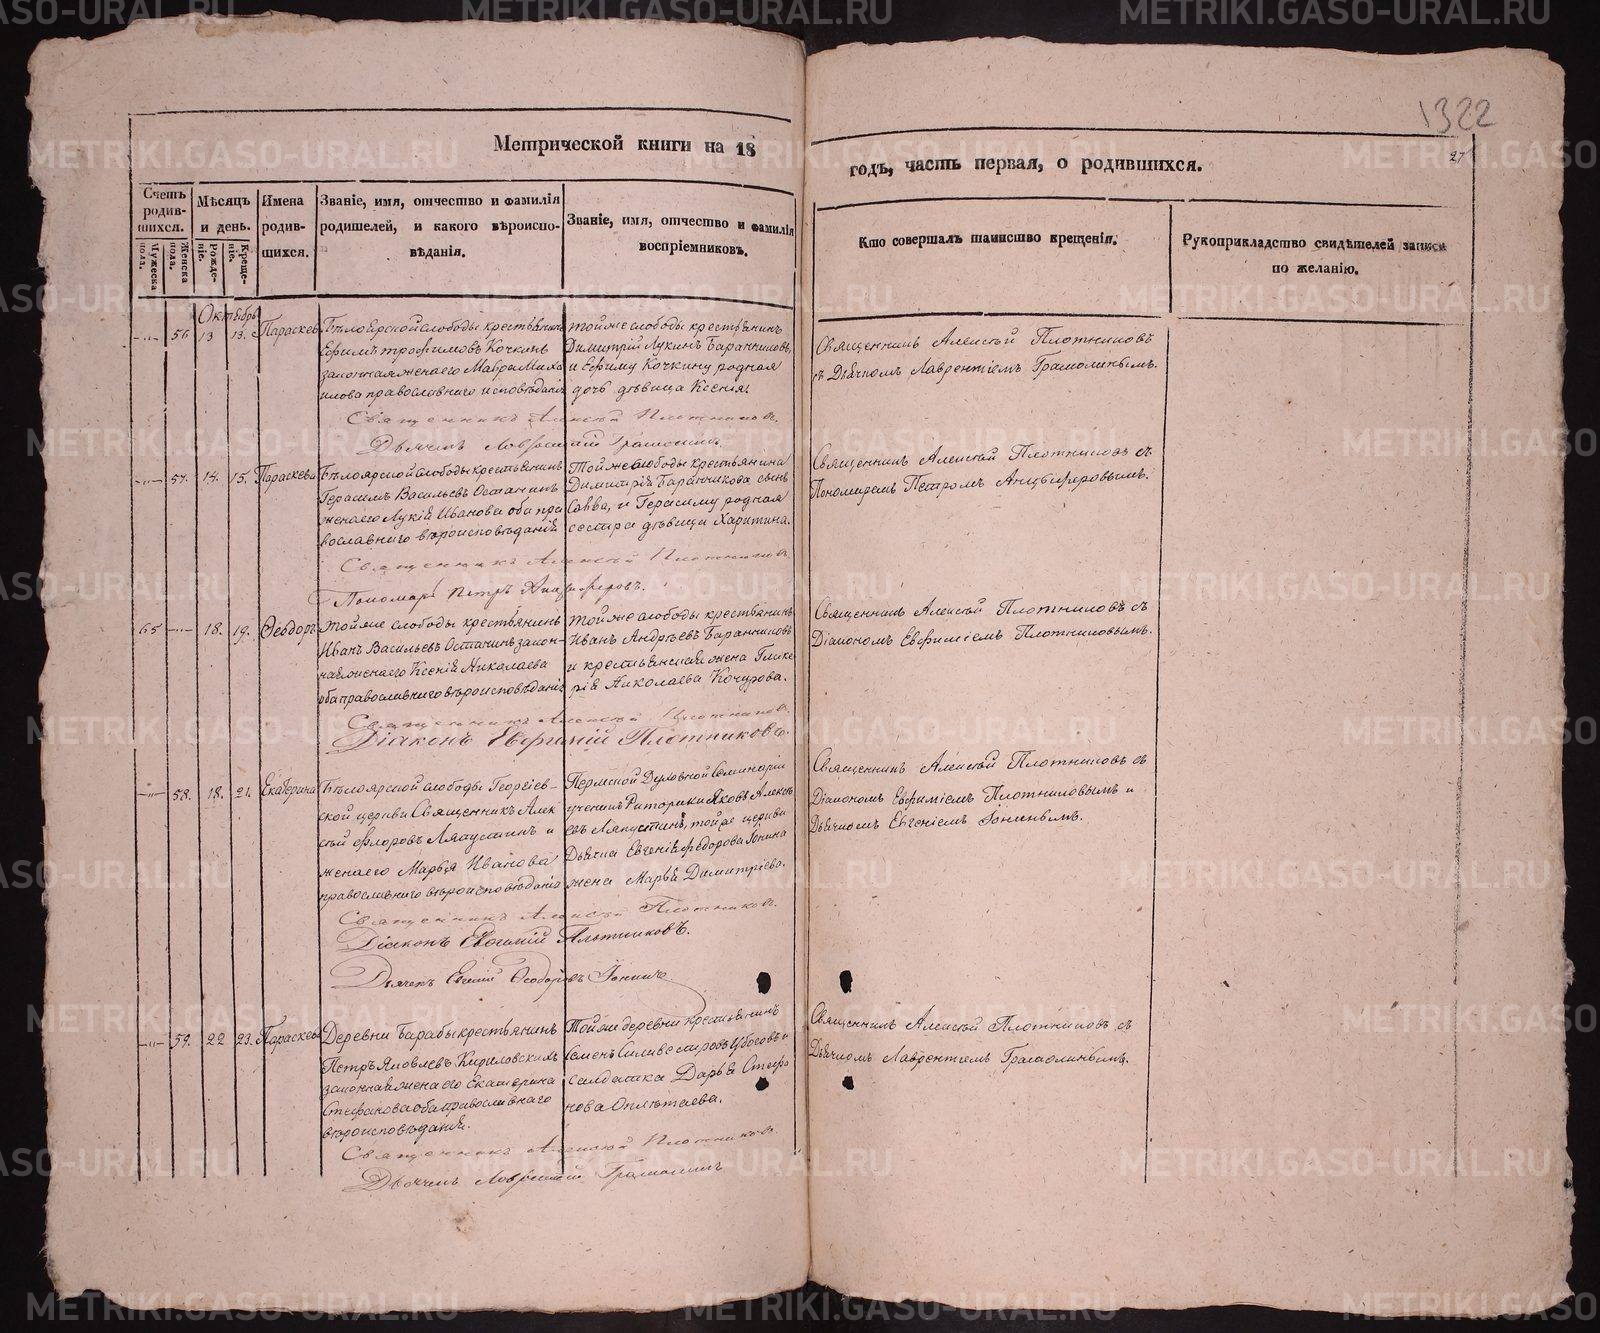 1322
27
Метрической книги на 18
годъ, часть первая, о родившихся.
Счетъ родив-шихся.
Мужеска пола.
Женска пола.
Мѣсяцъ и день.
Рожде-ніе.
Креще-ніе.
Имена родив-шихся.
Званіе, имя, отчество и фамилія
родителей, и какого вѣроиспо-
вѣданія.
Званіе, имя, отчество и фамилія
воспріемниковъ.
Кто совершалъ таинство крещенія.
Рукоприкладство свидѣтелей записи
по желанію.
Октябрь
56 13 13. Параскева
Бѣлоярской слободы крестьянинъ
Ефимъ Трофимовъ Кочкинъ
законная жена его Мавра Миха
илова православнаго исповѣданія
тойже слободы крестьянинъ
Димитрій Лукинъ Баранниковъ,
и Ефиму Кочкину родная
дочь дѣвица Ксенія.
Священникъ Алексѣй Плотниковъ
съ Дьячкомъ Лаврентіемъ Грамолинымъ.
Священникъ Алексѣй Плотниковъ.
Дьячекъ
57. 14. 15. Параскева
Бѣлоярской слободы крестьянинъ
Герасимъ Васильевъ Останинъ
жена его Лукія Иванова оба пра
вославнаго вѣроисповѣданія
Тойже слободы крестьянина
Димитрія Баранникова сынъ
Савва, и Герасиму родная
сестра дѣвица Харитина.
Священникъ Алексѣй Плотниковъ съ
Пономаремъ Петромъ Анциферовымъ.
Священникъ Алексѣй Плотниковъ
Пономарь Петръ Анциферовъ.
65 18. 19. Ѳеодоръ
Тойже слободы крестьянинъ
Иванъ Васильевъ Останинъ закон-
ная жена его Ксенія Николаева
оба православнаго вѣроисповѣданія
Тойже слободы крестьянинъ
Иванъ Андрѣевъ Баранниковъ
и крестьянская жена Глике
рія Николаева Кочурова.
Священникъ Алексѣй Плотниковъ съ
Діакономъ Евфиміемъ Плотниковымъ.
Священникъ Алексѣй Плотниковъ.
Діаконъ Евфимій Плотниковъ.
58. 18. 21. Екатерина
Бѣлоярской слободы Георгіев-
ской церкви Священникъ Алек
сѣй Флоровъ Ляпустинъ и
жена его Марья Иванова
православнаго вѣроисповѣданія
Пермской Духовной Семинаріи
ученикъ Риторики Яковъ Алексѣ
евъ Ляпустинъ, той же церкви
Дьячка Евгенія Федорова Іонина
жена Марья Димитріева.
Священникъ Алексѣй Плотниковъ съ
Діакономъ Евфиміемъ Плотниковымъ и
Дьячкомъ Евгеніемъ Іонинымъ.
Священникъ Алексѣй Плотниковъ.
Діаконъ Евфимій Плотниковъ.
Дьячекъ Евгеній Ѳеодоровъ Іонинъ
59. 22 23. Параскева
Деревни Барабы крестьянинъ
Петръ Яковлевъ Кириловскихъ
законная жена его Екатерина
Стефанова оба православнаго
вѣроисповѣданія.
Тойже деревни крестьянинъ
Семенъ Силивестровъ Убоговъ и
солдатка Дарья Стефа
нова Оплѣтаева.
Священникъ Алексѣй Плотниковъ съ
Дьячкомъ Лаврентіемъ Грамолинымъ.
Священникъ Алексѣй Плотниковъ
Дьячекъ
METRIKI.GASO-URAL.RU